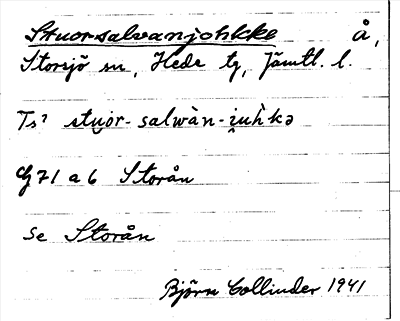 Stuorsalvanjohkke å,
Storsjö sn, Hede tg, Jämtl. l.
Ts? stu̯or-salwàn-i̯uh̀kə
G 71 a 6 Storån
se Storån
Björn Collinder 1941